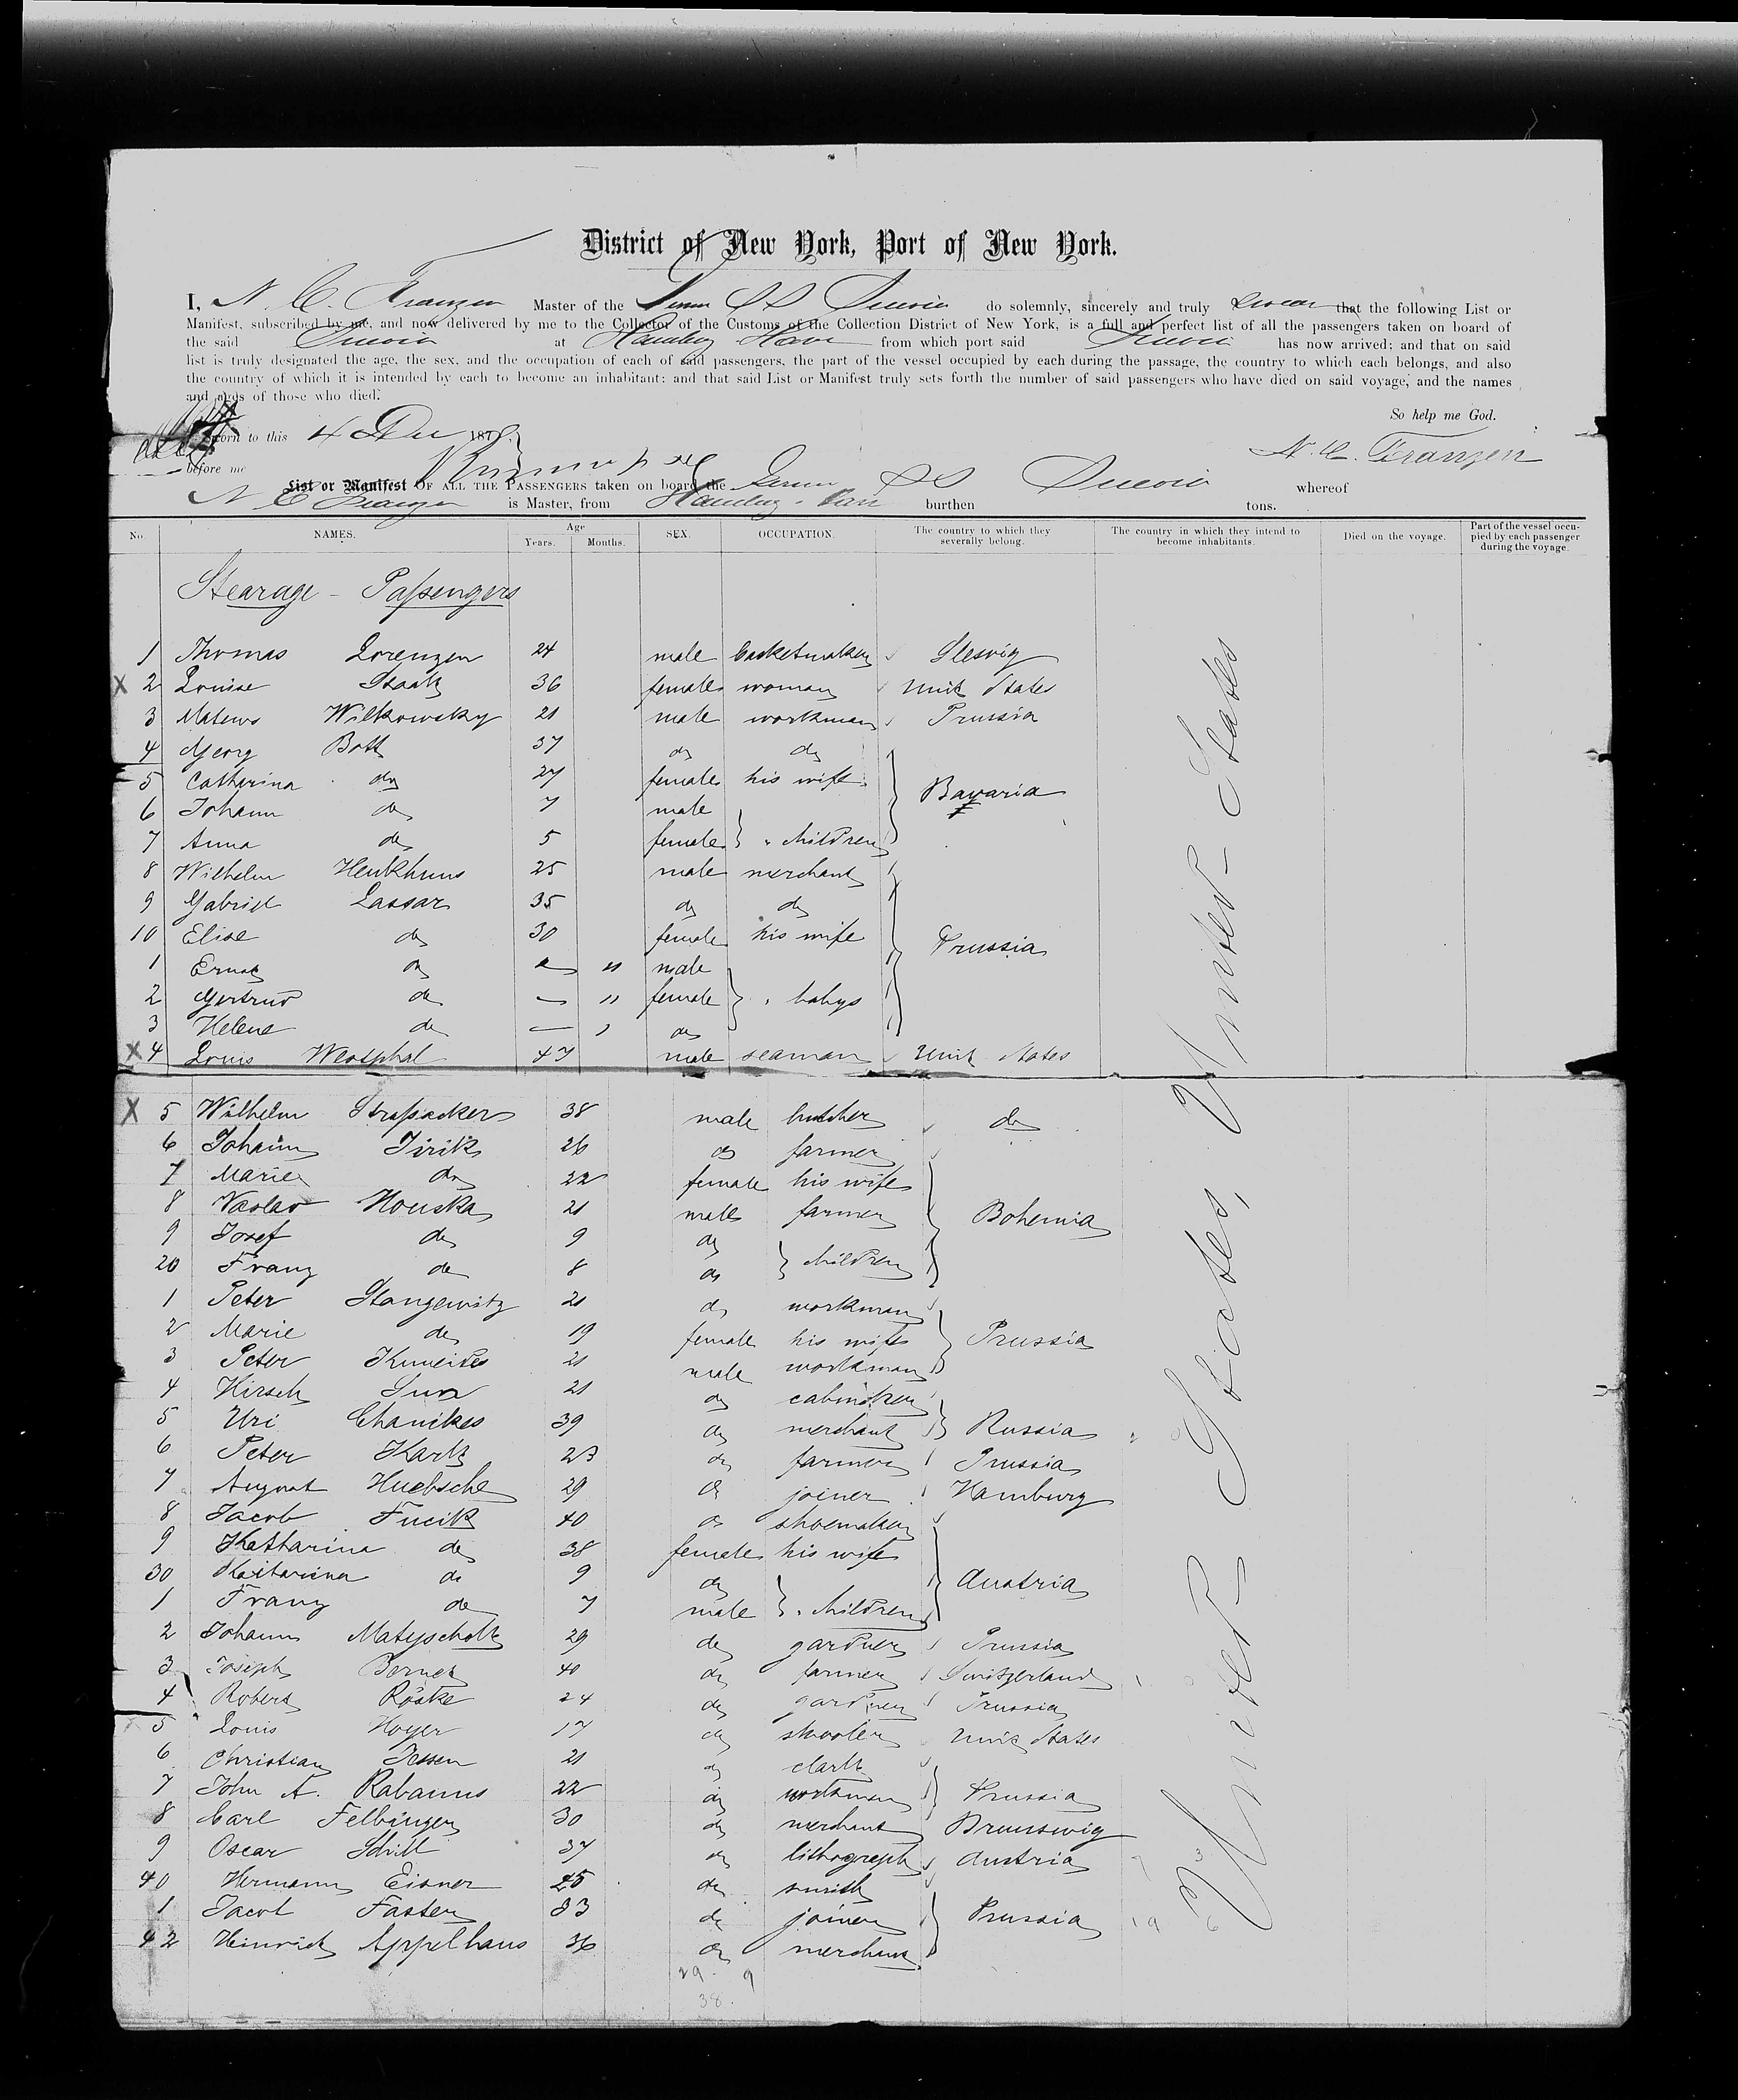 District of New York, Port of New York.
I, N. C. Franzen Master of the SS Suevia do solemnly, sincerely and truly swear that the following List or
Manifest, subscribed by me, and now delivered by me to the Collector of the Customs of the Collection District of New York, is a full and perfect list of all the passengers taken on board of
the said Suevia at Hamburg Havre from which port said Suevia has now arrived; and that on said
list is truly designated the age, the sex, and the occupation of each of said passengers, the part of the vessel occupied by each during the passage, the country to which each belongs, and also
the country of which it is intended by each to become an inhabitant; and that said List or Manifest truly sets forth the number of said passengers who have died on said voyage, and the names
and ages of those who died.
So help me God.
Sworn to this 4 Dec 187
N. C. Franzen
before me
List or Manifest OF ALL THE PASSENGERS taken on board the German SS Suevia whereof
N C Franzen is Master, from Hamburg burthen tons.
No. NAMES. Age Years. Months. SEX. OCCUPATION. The country to which they severally belong. The country in which they intend to become inhabitants. Died on the voyage. Part of the vessel occupied by each passenger during the voyage.
Stearage - Passengers
1 Thomas Lorenzen 24 male basketmaker Slesvig
X 2 Louise Staats 36 female woman Unit States
3 Mateus Wilkowsky 21 male workman Prussia
4 Georg Bott 37 do do
5 Catharina do 27 female his wife Bavaria
6 Johann do 7 male
7 Anna do 5 female " children
8 Wilhelm Henkhuus 25 male merchant
9 Gabriel Lassar 35 do do
10 Elise do 30 female his wife Prussia
1 Ernst do " male
2 Gertrud do — " female " babys
3 Helene do — " do
X 4 Louis Westphal 47 male seaman Unit States
X 5 Wilhelm Strassacker 38 male butcher do
6 Johann Jirik 26 do farmer
7 Marie do 22 female his wife
8 Vaslav Houska 21 male farmer Bohemia
9 Josef do 9 do
20 Franz do 8 do children
1 Peter Stangewitz 21 do workman
2 Marie do 19 female his wife Prussia
3 Peter Kumeises 21 male workman
4 Hirsch 21 do
5 Uri Chanikes 39 do merchant Russia
6 Peter Kartz 23 do farmer Prussia
7 August Huebsche 29 do joiner Hamburg
8 Jacob Fucik 40 do shoemaker
9 Katharina do 38 female his wife
30 Katarina do 9 do Austria
1 Franz do 7 male " children
2 Johann Matyscholk 29 do gardner Prussia
3 Joseph Berner 40 do farmer Switzerland
4 Robert Röske 24 do gardner Prussia
5 Louis Hoyer 17 do shooler Unit States
6 Christian Jessen 21 do clark
7 John A. Rabanus 22 do workman Prussia
8 Carl Felbinger 30 do merchant Brunswig
9 Oscar Schill 37 do lithograph Austria
40 Hermann Eisner 25 do smith
1 Jacob Faster 33 do joiner Prussia
42 Heinrich Appelhans 36 do merchant
29. 9
38.
United States, United States